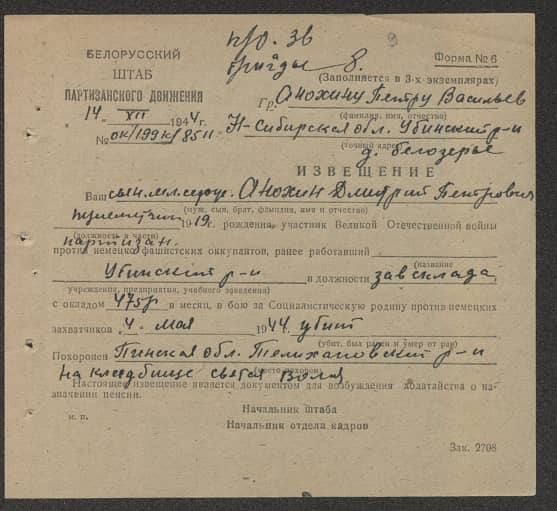 п/о. 36
бригады 8.
БЕЛОРУССКИЙ
ШТАБ
ПАРТИЗАНСКОГО ДВИЖЕНИЯ
14 XII 1944 г.
№ ок/199к/8511
Форма № 6
(Заполняется в 3-х экземплярах)
Гр. Анохину Петру Васильев
(фамилия, имя, отчество)
Н-Сибирская обл. Убинский р-н
(точный адрес)
д. Белозерье
ИЗВЕЩЕНИЕ
Ваш сын мл. Анохин Дмитрий Петрович
(муж, сын, брат, фамилия, имя и отчество)
1919 г. рождения, участник Великой Отечественной войны
(должность в части)
партизан.
против немецко-фашистских оккупантов, ранее работавший
(название
Убинский р-н в должности завсклада
учреждения, предприятия, учебного заведения)
с окладом 475р в месяц, в бою за Социалистическую родину против немецких
захватчиков 4. мая 1944 г. убит
(убит, был ранен и умер от ран)
Похоронен Пинская обл. Телехановский р-н
(место похорон)
на кладбище Воля
Настоящее извещение является документом для возбуждения ходатайства о на-
значении пенсии.
Начальник штаба
м. п.
Начальник отдела кадров
Зак. 2708